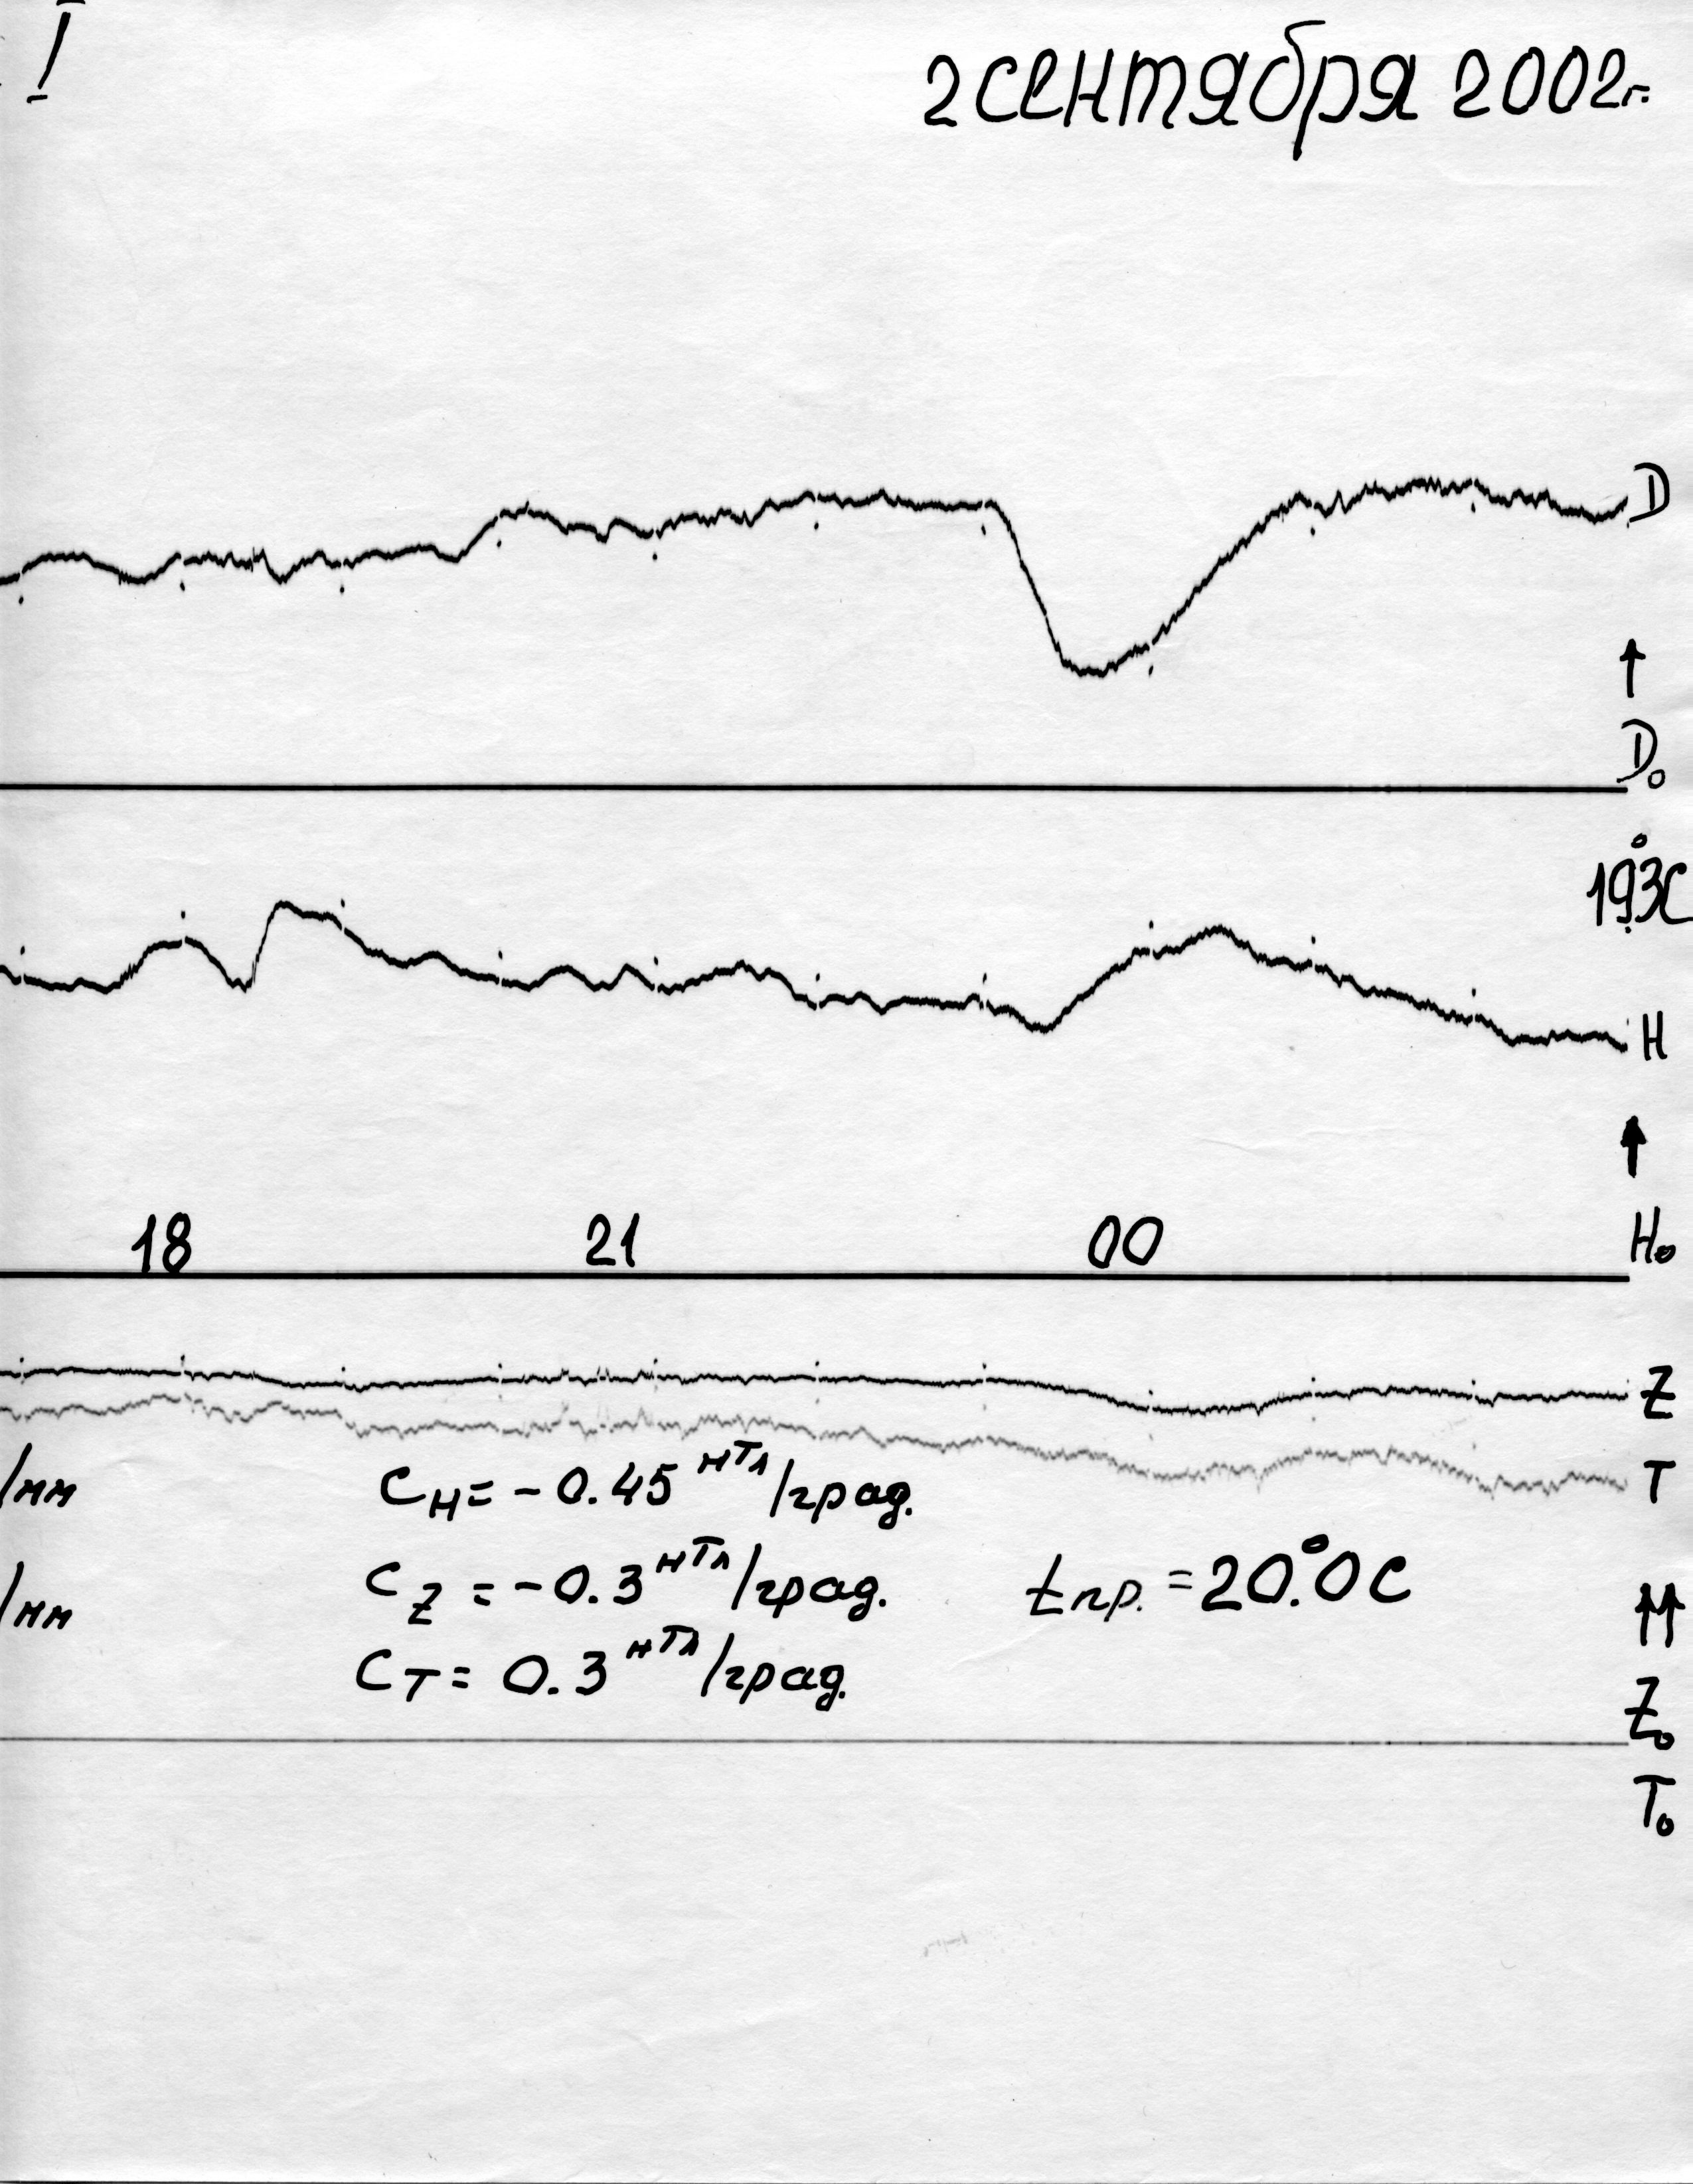 I
2 сентября 2002г.
D
D₀
19.°3C
H
18 21 00 H₀
Z
T
/мм Cн = - 0.45 нТл/град.
/мм Cz = - 0.3 нТл/град. tпр. = 20.°0 C
Cт = 0.3 нТл/град.
Z₀
T₀